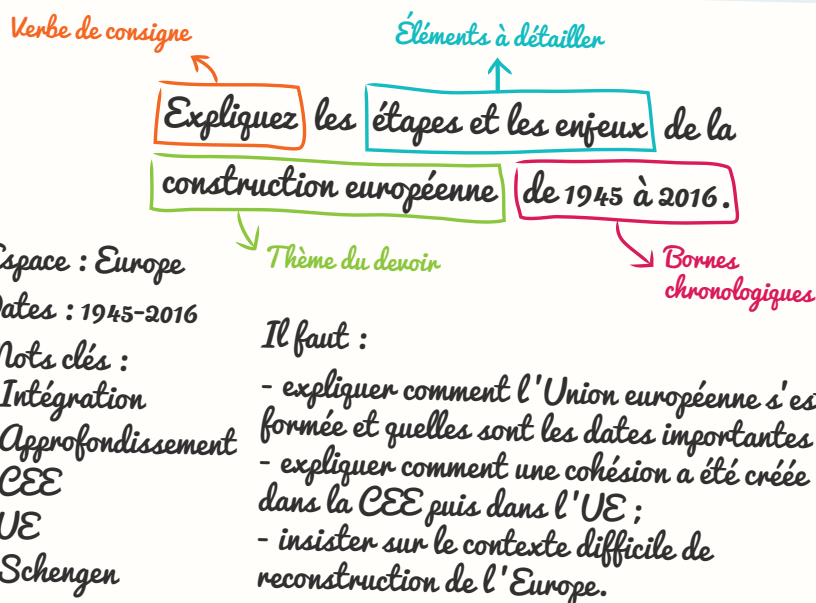 Verbe de consigne
Éléments à détailler
Expliquez les étapes et les enjeux de la
construction européenne de 1945 à 2016.
Thème du devoir
Bornes
chronologiques
Espace : Europe
Dates : 1945-2016
Mots clés :
Intégration
Approfondissement
CEE
UE
Schengen
Il faut :
- expliquer comment l'Union européenne s'es
formée et quelles sont les dates importantes
- expliquer comment une cohésion a été créée
dans la CEE puis dans l'UE ;
- insister sur le contexte difficile de
reconstruction de l'Europe.